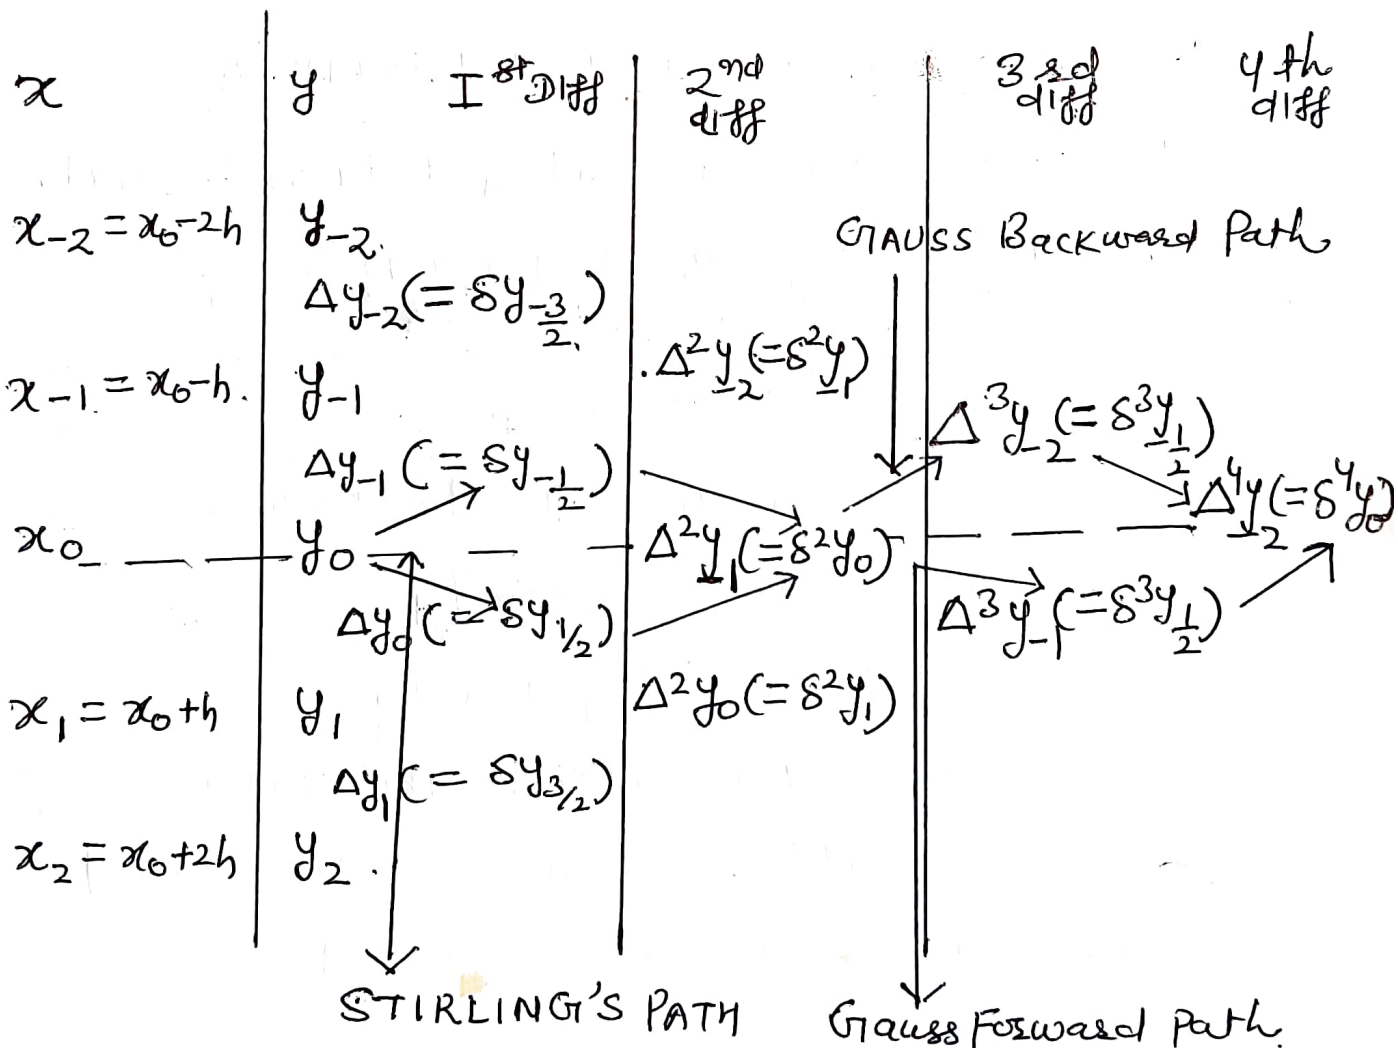 x y Ist Diff 2nd diff 3rd diff 4th diff
x₋₂ = x₀-2h y₋₂. GAUSS Backward Path
Δy₋₂(= δy₋₃⁄₂)
.Δ²y₋₂(=δ²y₋₁)
x₋₁. = x₀-h. y₋₁
Δ³y₋₂(= δ³y₋₁⁄₂)
Δy₋₁(= δy₋₁⁄₂)
Δ⁴y₋₂(=δ⁴y₀)
x₀ y₀ Δ²y₋₁(=δ²y₀)
Δy₀(= δy₁/₂) Δ³y₋₁(=δ³y₁⁄₂)
x₁ = x₀+h y₁ Δ²y₀(=δ²y₁)
Δy₁(= δy₃/₂)
x₂ = x₀+2h y₂.
STIRLING'S PATH Gauss Forward Path.